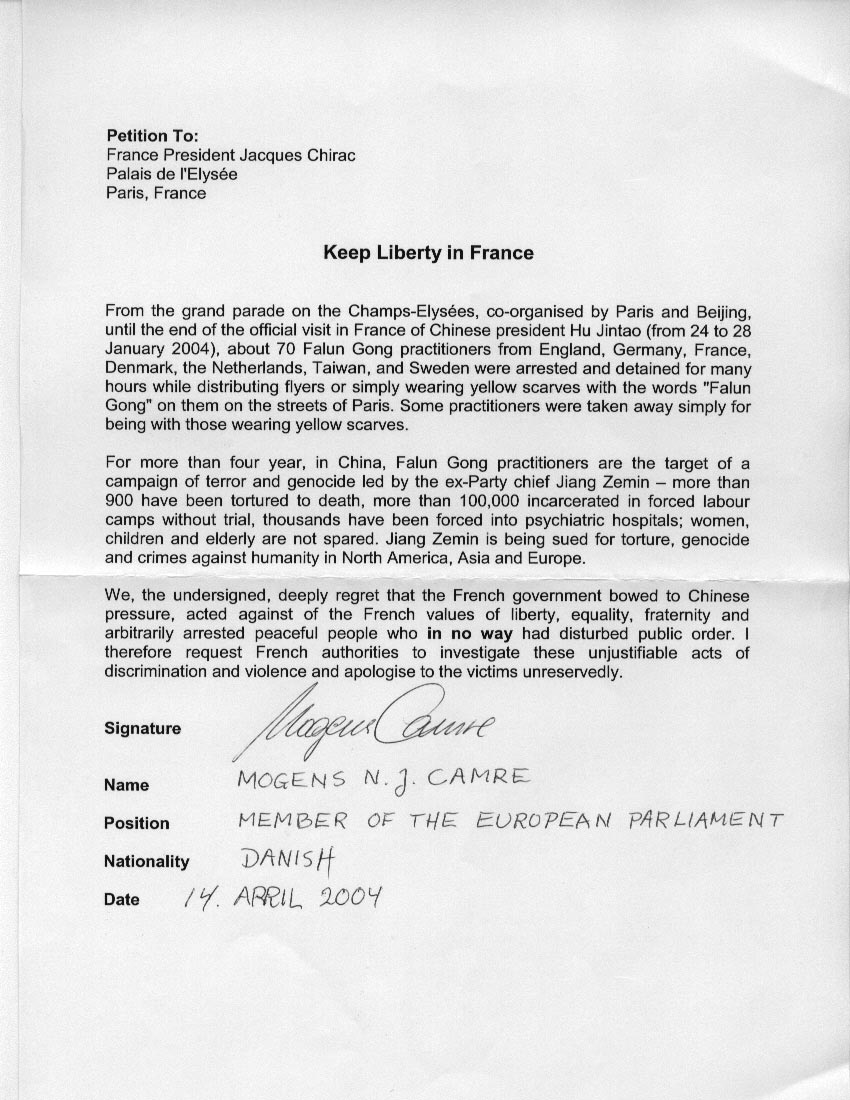 Petition To:
France President Jacques Chirac
Palais de l'Elysée
Paris, France
Keep Liberty in France
From the grand parade on the Champs-Elysées, co-organised by Paris and Beijing,
until the end of the official visit in France of Chinese president Hu Jintao (from 24 to 28
January 2004), about 70 Falun Gong practitioners from England, Germany, France,
Denmark, the Netherlands, Taiwan, and Sweden were arrested and detained for many
hours while distributing flyers or simply wearing yellow scarves with the words "Falun
Gong" on them on the streets of Paris. Some practitioners were taken away simply for
being with those wearing yellow scarves.
For more than four year, in China, Falun Gong practitioners are the target of a
campaign of terror and genocide led by the ex-Party chief Jiang Zemin – more than
900 have been tortured to death, more than 100,000 incarcerated in forced labour
camps without trial, thousands have been forced into psychiatric hospitals; women,
children and elderly are not spared. Jiang Zemin is being sued for torture, genocide
and crimes against humanity in North America, Asia and Europe.
We, the undersigned, deeply regret that the French government bowed to Chinese
pressure, acted against of the French values of liberty, equality, fraternity and
arbitrarily arrested peaceful people who in no way had disturbed public order. I
therefore request French authorities to investigate these unjustifiable acts of
discrimination and violence and apologise to the victims unreservedly.
Signature Mogens Camre
Name MOGENS N. J. CAMRE
Position MEMBER OF THE EUROPEAN PARLIAMENT
Nationality DANISH
Date 14. APRIL 2004